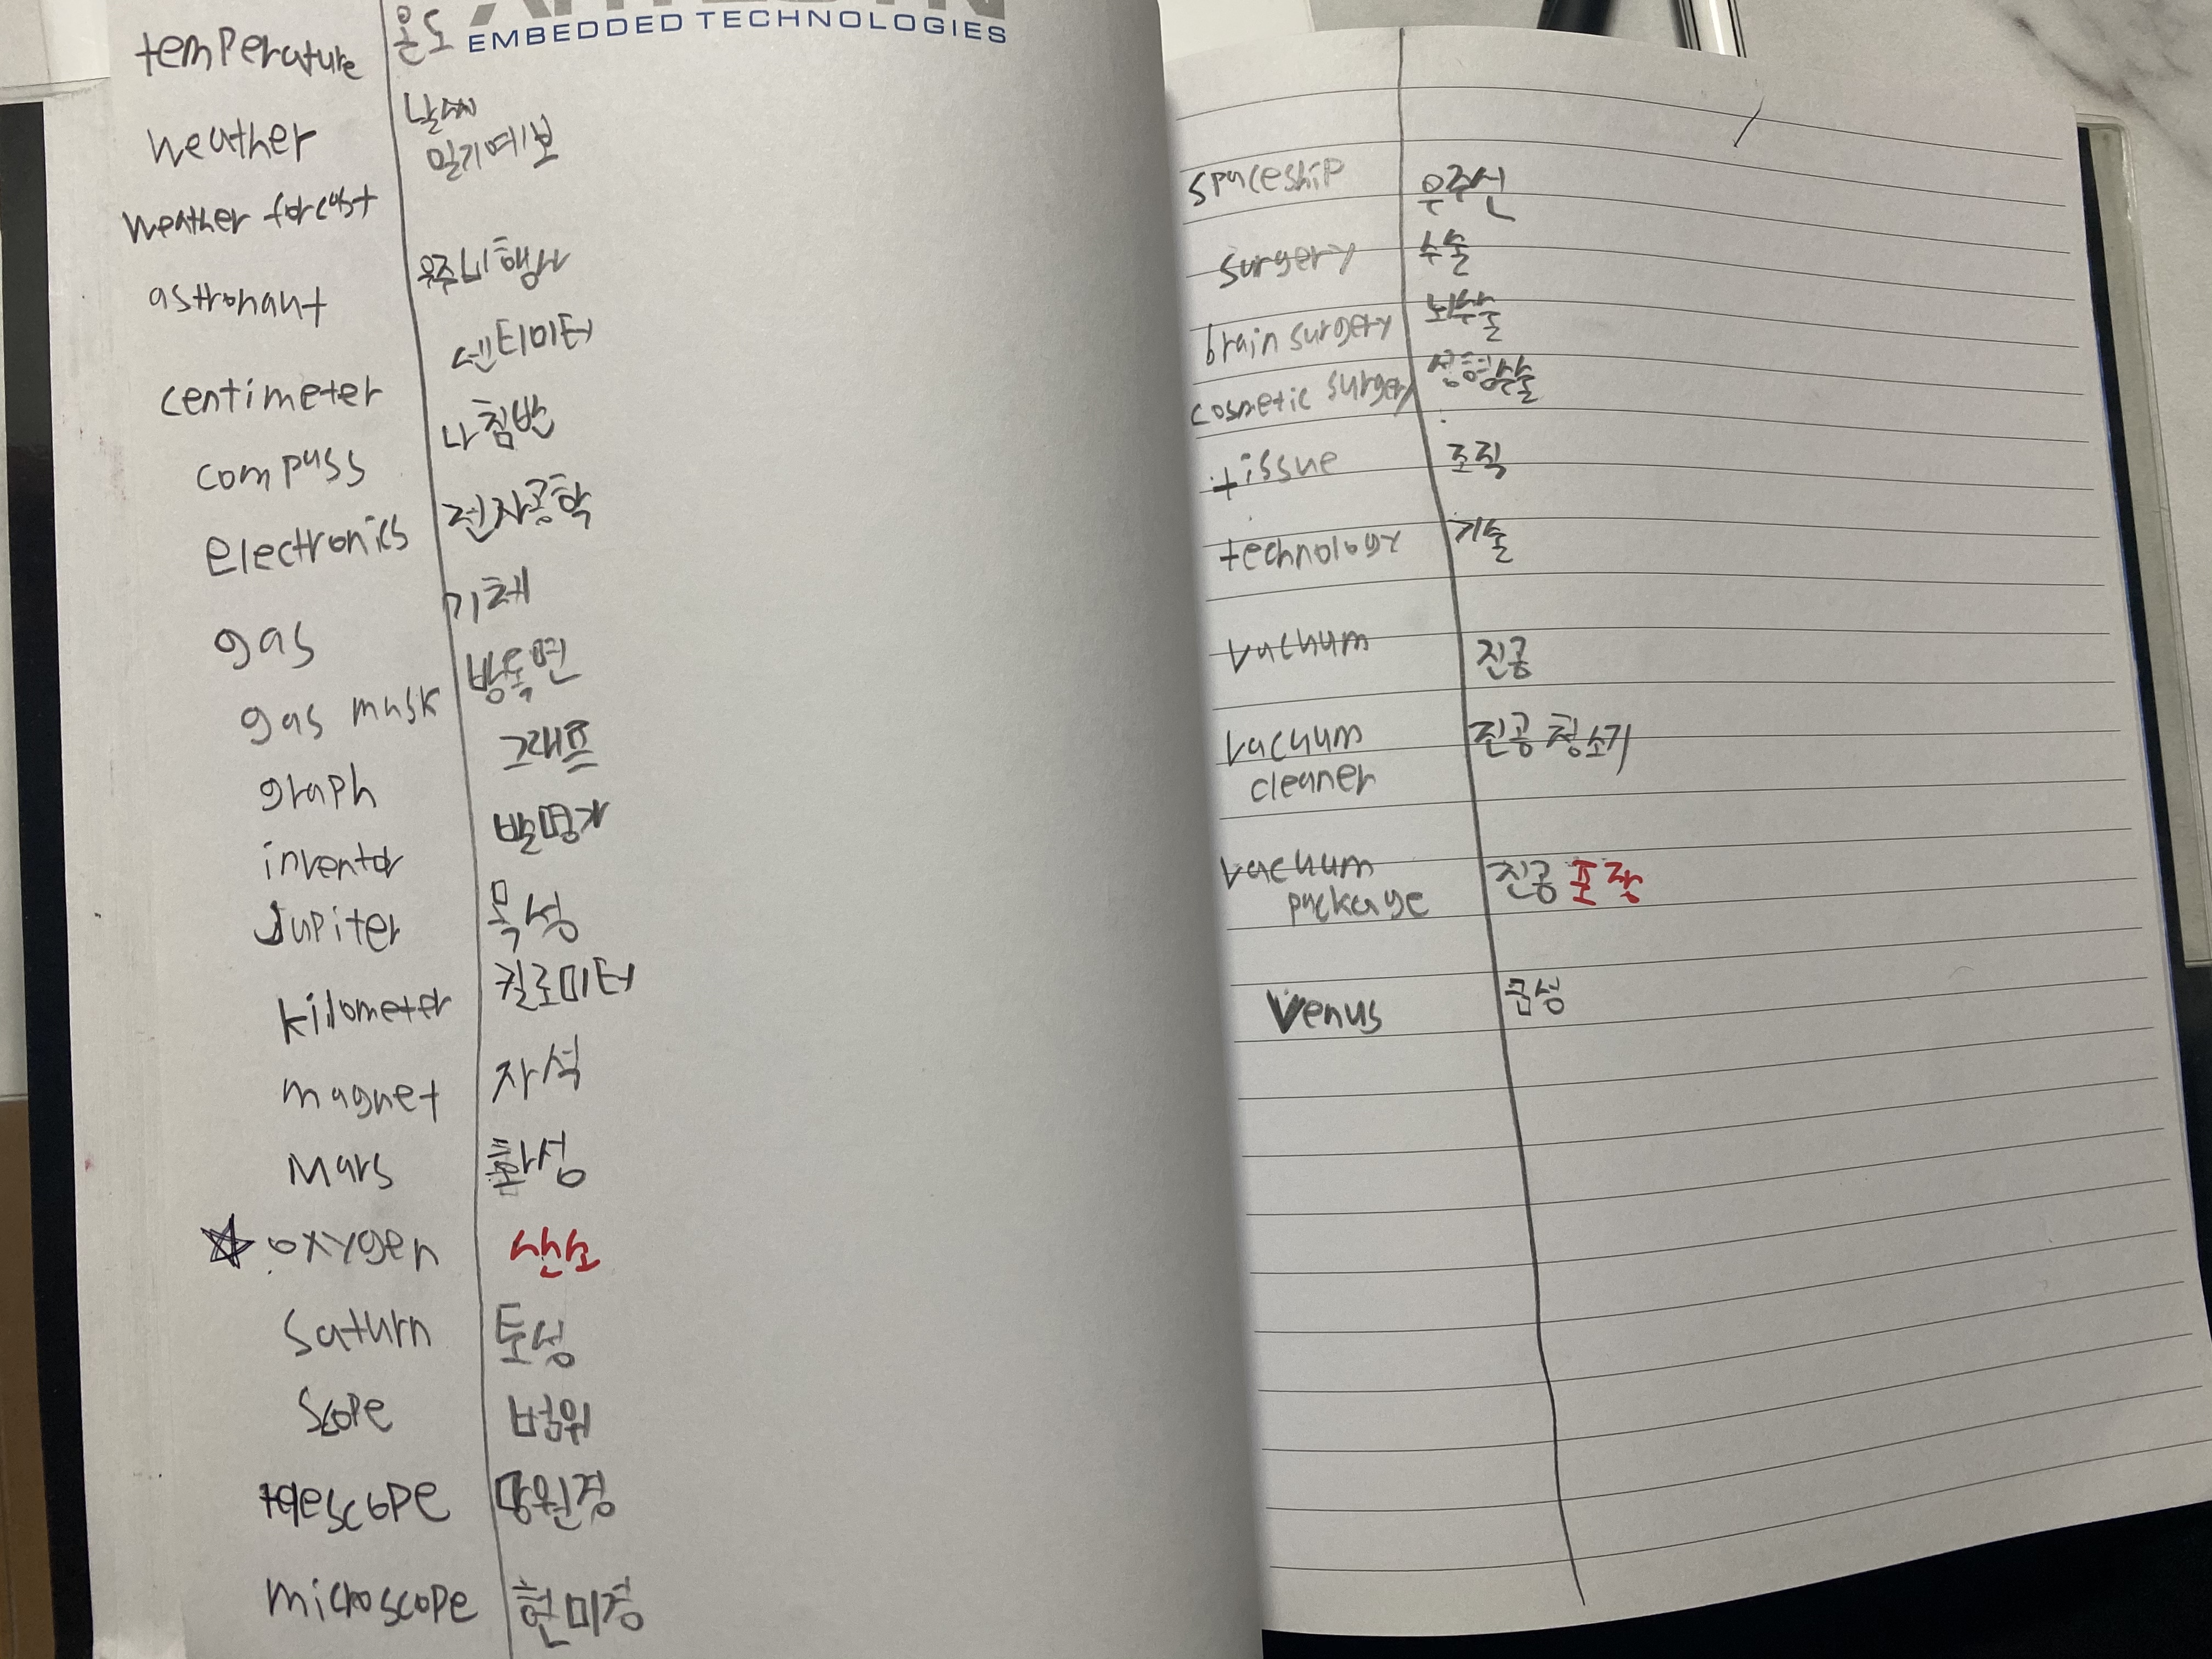 EMBEDDED TECHNOLOGIES
temperature 온도
weather 날씨
weather forcast 일기예보
astronaut 우주비행사
centimeter 센티미터
compass 나침반
electronics 전자공학
gas 기체
gas mask 방독면
graph 그래프
inventor 발명가
Jupiter 목성
kilometer 킬로미터
magnet 자석
Mars 화성
oxygen 산소
Saturn 토성
Scope 범위
telescope 망원경
microscope 현미경
spaceship 우주선
surgery 수술
brain surgery 뇌수술
cosmetic surgery 성형수술
tissue 조직
technology 기술
vacuum 진공
vacuum 진공 청소기
cleaner
vacuum 진공 포장
package
Venus 금성